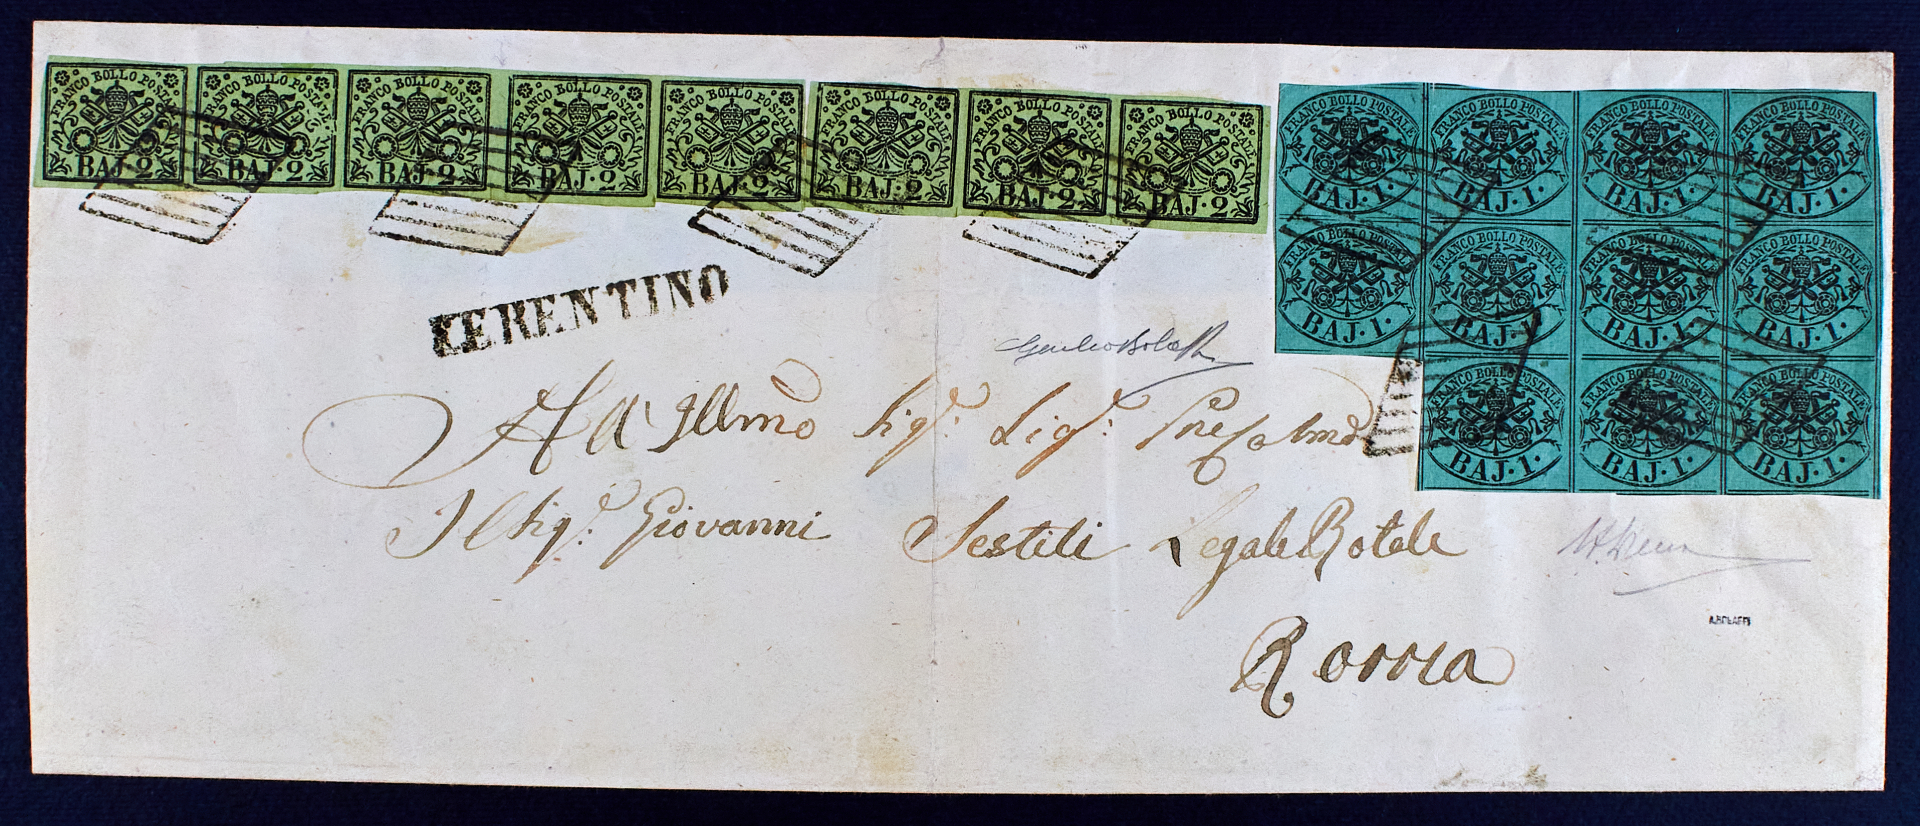 FRANCO BOLLO POSTALE BAJ. 2
FRANCO BOLLO POSTALE BAJ. 2
FRANCO BOLLO POSTALE BAJ. 2
FRANCO BOLLO POSTALE BAJ. 2
FRANCO BOLLO POSTALE BAJ. 2
FRANCO BOLLO POSTALE BAJ. 2
FRANCO BOLLO POSTALE BAJ. 2
FRANCO BOLLO POSTALE BAJ. 2
FRANCO BOLLO POSTALE BAJ. 1.
FRANCO BOLLO POSTALE BAJ. 1.
FRANCO BOLLO POSTALE BAJ. 1.
FRANCO BOLLO POSTALE BAJ. 1.
FRANCO BOLLO POSTALE BAJ. 1.
FRANCO BOLLO POSTALE BAJ. 1.
FRANCO BOLLO POSTALE BAJ. 1.
FRANCO BOLLO POSTALE BAJ. 1.
FRANCO BOLLO POSTALE BAJ. 1.
FRANCO BOLLO POSTALE BAJ. 1.
FRANCO BOLLO POSTALE BAJ. 1.
FERENTINO
All' Illmo Sigr. Sigr.
Il Sigr. Giovanni Sestili Legale Rotale
Roma
A.BOLAFFI